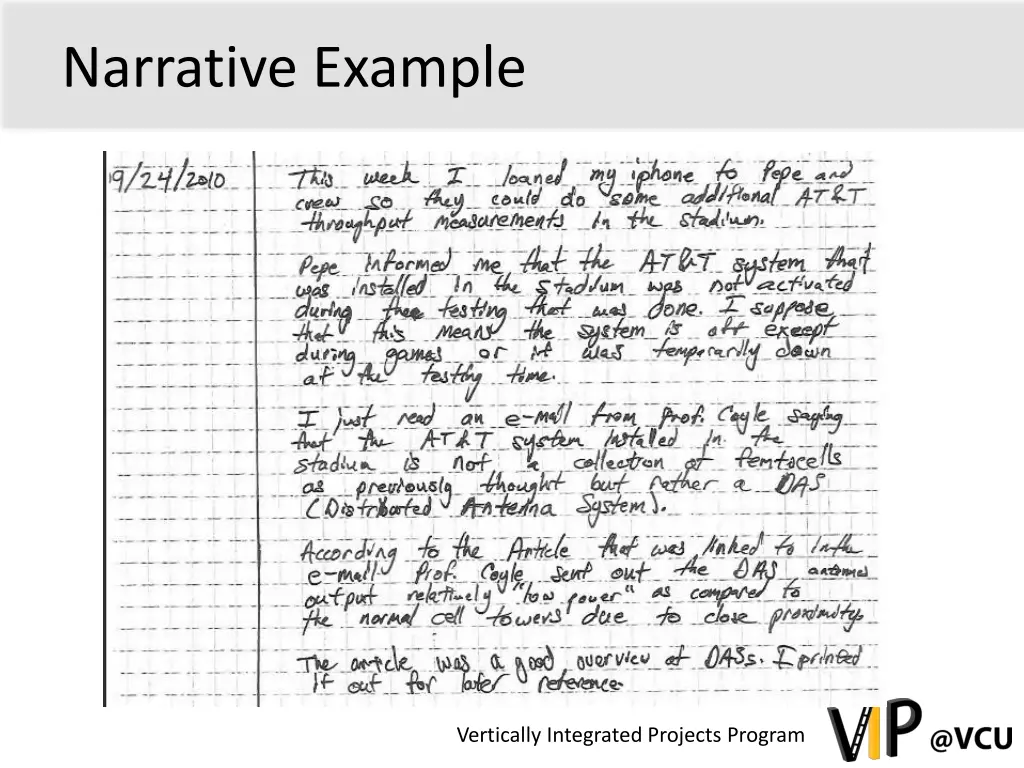 Narrative Example
9/24/2010
This week I loaned my iphone to Pepe and
crew so they could do some additional AT&T
throughput measurements in the stadium.
Pepe informed me that the AT&T system that
was installed in the stadium was not activated
during the testing that was done. I suppose
that this means the system is off except
during games or it was temporarily down
at the testing time.
I just read an e-mail from Prof. Coyle saying
that the AT&T system installed in the
stadium is not a collection of femtocells
as previously thought but rather a DAS
(Distributed Antenna System).
According to the Article that was linked to in the
e-mail Prof. Coyle sent out the DAS antennas
output relatively "low power" as compared to
the normal cell towers due to close proximity.
The article was a good overview of DASs. I printed
it out for later reference.
Vertically Integrated Projects Program
VIP @VCU